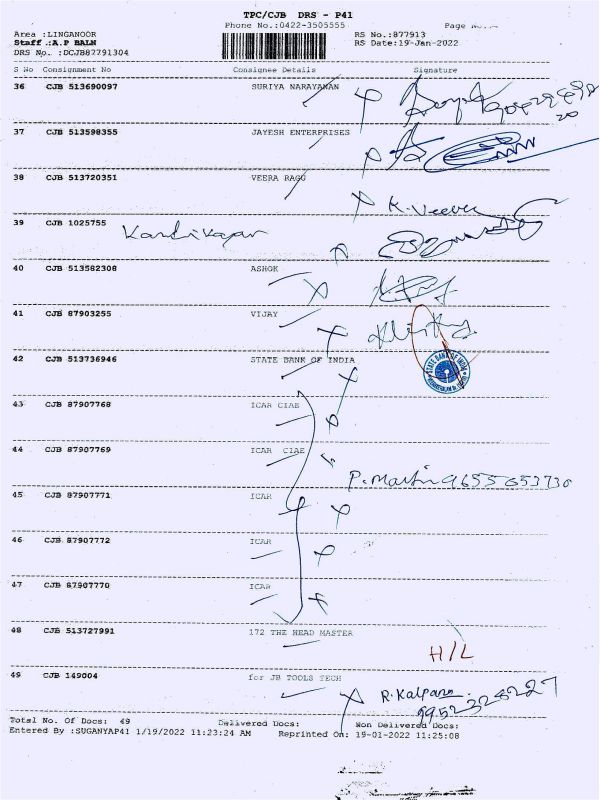 TPC/CJB DRS - P41
Phone No.:0422-3505555 Page No.
Area : LINGANOOR RS No.:877913
Staff :A.P BALN RS Date:19-Jan-2022
DRS No. :DCJB87791304
S No Consignment No Consignee Details Signature
36 CJB 513690097 SURIYA NARAYANAN
37 CJB 513598355 JAYESH ENTERPRISES
38 CJB 513720351 VEERA RAGU
K. Veera
39 CJB 1025755
40 CJB 513582308 ASHOK
41 CJB 87903255 VIJAY
42 CJB 513736946 STATE BANK OF INDIA
STATE BANK OF INDIA
43 CJB 87907768 ICAR CIAE
44 CJB 87907769 ICAR CIAE
P. Martin 9655653730
45 CJB 87907771 ICAR
46 CJB 87907772 ICAR
47 CJB 87907770 ICAR
48 CJB 513727991 172 THE HEAD MASTER
H/L
49 CJB 149004 for JB TOOLS TECH
R. Kalpana
9952328227
Total No. Of Docs: 49 Delivered Docs: Non Delivered Docs:
Entered By :SUGANYAP41 1/19/2022 11:23:24 AM Reprinted On: 19-01-2022 11:25:08